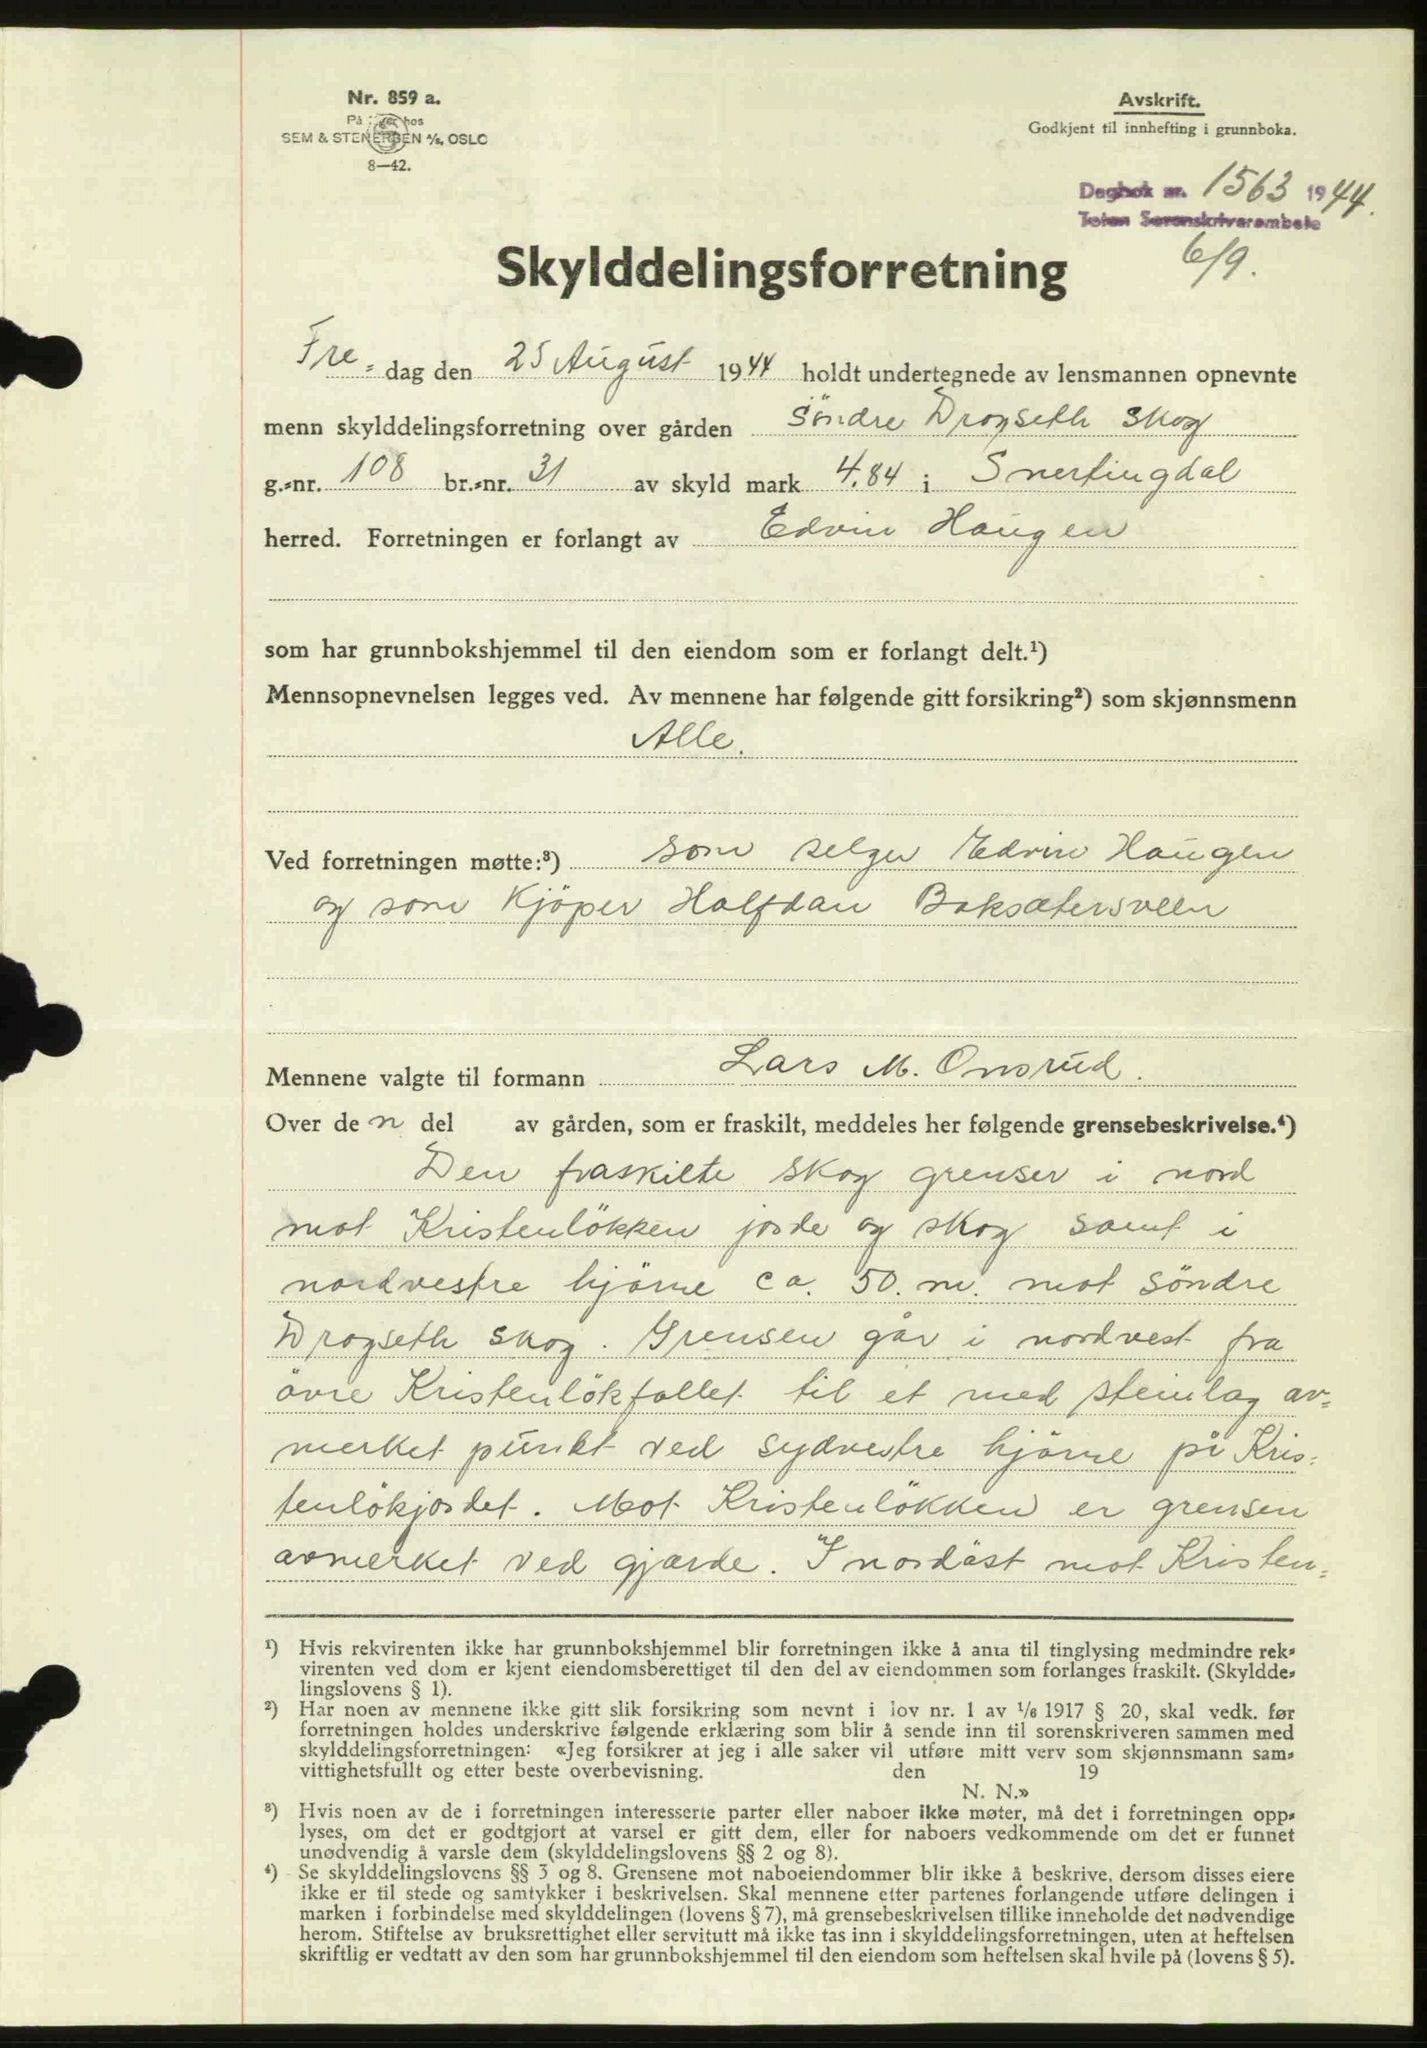 Nr. 859 a.
På lager hos
SEM & STENERSEN A/S, OSLO
8—42.
Avskrift.
Godkjent til innhefting i grunnboka.
Dagbok nr. 1563 1944.
Toten Sorenskriverembete
6/9.
Skylddelingsforretning
Fre- dag den 25 August 1944 holdt undertegnede av lensmannen opnevnte
menn skylddelingsforretning over gården Söndre Drogseth Skog
g.-nr. 108 br.-nr. 31 av skyld mark 4.84 i Snertingdal
herred. Forretningen er forlangt av Edvin Haugen
som har grunnbokshjemmel til den eiendom som er forlangt delt.¹)
Mennsopnevnelsen legges ved. Av mennene har følgende gitt forsikring²) som skjønnsmenn
Alle.
Ved forretningen møtte:³) som selger Edvin Haugen
og som Kjöper Halfdan Baksætersveen
Mennene valgte til formann Lars M. Onsrud.
Over de n del av gården, som er fraskilt, meddeles her følgende grensebeskrivelse.⁴)
Den fraskilte skog grenser i nord
mot Kristenlökken jorde og skog samt i
nordvestre hjörne ca. 50. m. mot söndre
Drogseth skog. Grensen går i nordvest fra
övre Kristenlökfallet til et med steinlag av-
merket punkt ved sydvestre hjörne på Kris-
tenlökjordet. Mot Kristenlökken er grensen
avmerket ved gjærde. I nordöst mot Kristen-
¹) Hvis rekvirenten ikke har grunnbokshjemmel blir forretningen ikke å anta til tinglysing medmindre rek-
virenten ved dom er kjent eiendomsberettiget til den del av eiendommen som forlanges fraskilt. (Skyldde-
lingslovens § 1).
²) Har noen av mennene ikke gitt slik forsikring som nevnt i lov nr. 1 av 1/6 1917 § 20, skal vedk. før
forretningen holdes underskrive følgende erklæring som blir å sende inn til sorenskriveren sammen med
skylddelingsforretningen: «Jeg forsikrer at jeg i alle saker vil utføre mitt verv som skjønnsmann sam-
vittighetsfullt og etter beste overbevisning. den 19
N. N.»
³) Hvis noen av de i forretningen interesserte parter eller naboer ikke møter, må det i forretningen opp-
lyses, om det er godtgjort at varsel er gitt dem, eller for naboers vedkommende om det er funnet
unødvendig å varsle dem (skylddelingslovens §§ 2 og 8).
⁴) Se skylddelingslovens §§ 3 og 8. Grensene mot naboeiendommer blir ikke å beskrive, dersom disses eiere
ikke er til stede og samtykker i beskrivelsen. Skal mennene etter partenes forlangende utføre delingen i
marken i forbindelse med skylddelingen (lovens § 7), må grensebeskrivelsen tillike inneholde det nødvendige
herom. Stiftelse av bruksrettighet eller servitutt må ikke tas inn i skylddelingsforretningen, uten at heftelsen
skriftlig er vedtatt av den som har grunnbokshjemmel til den eiendom som heftelsen skal hvile på (lovens § 5).